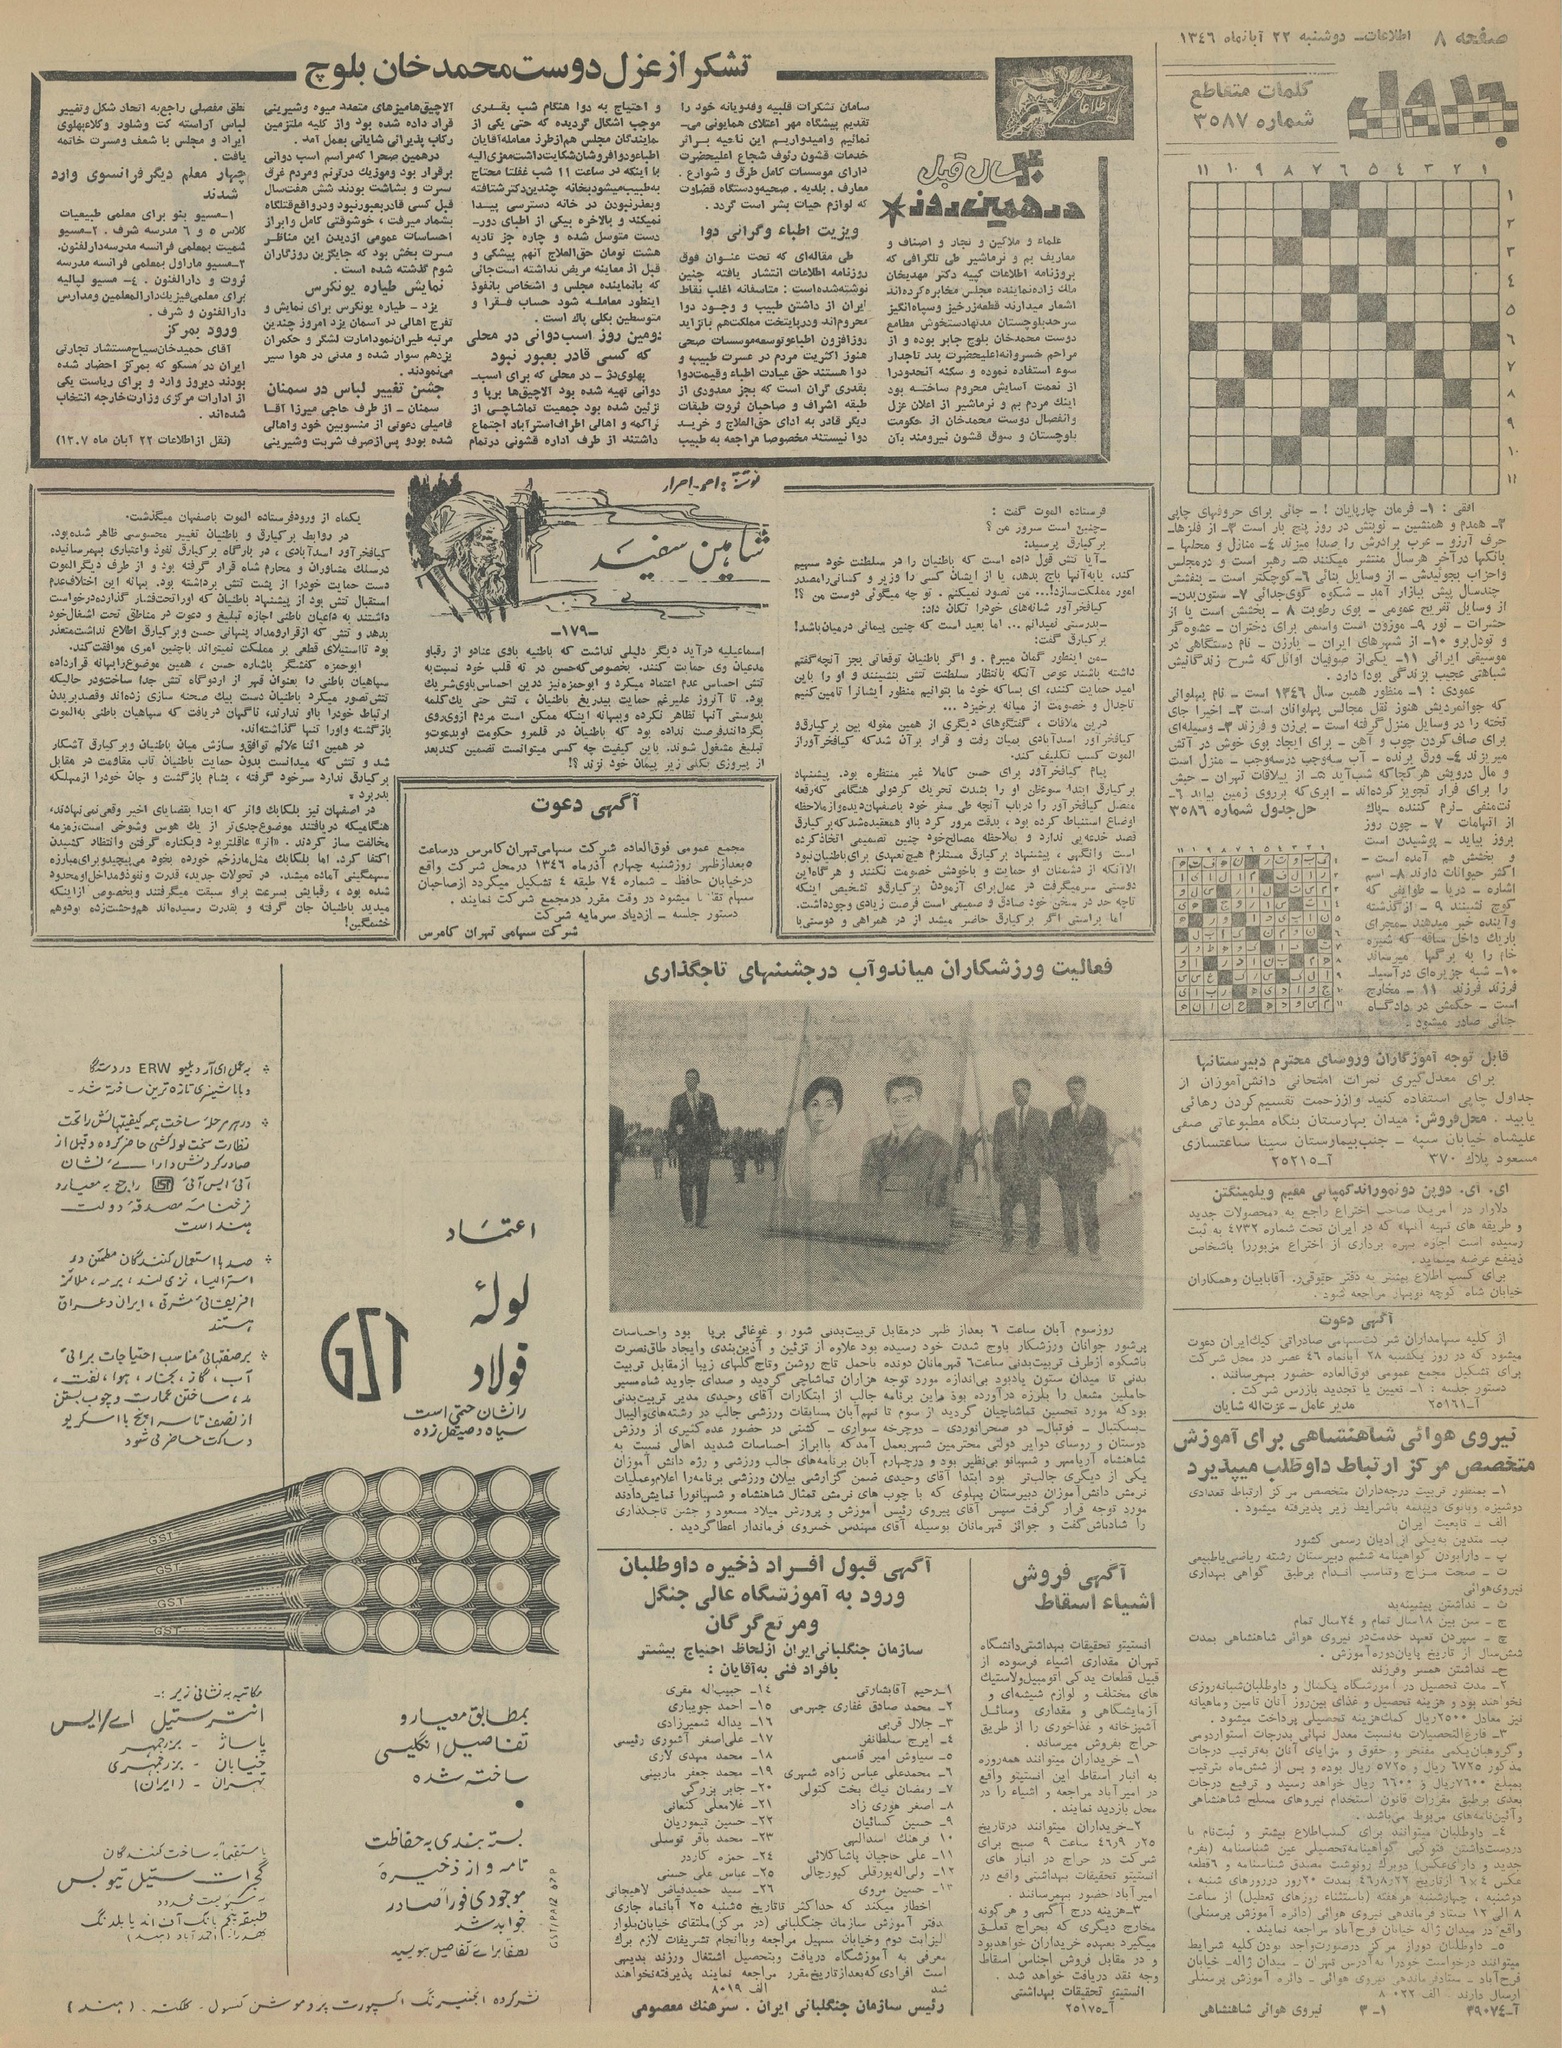 صفحه ۸ اطلاعات- دوشنبه ۲۲ آبانماه ۱۳۴۶
جدول
کلمات متقاطع
شماره ۳۵۸۷
تشکر از عزل دوست محمدخان بلوچ
۴۰ سال قبل
در همین روز
علماء و ملاکین و تجار و اصناف و
معاریف بم و نرماشیر طی تلگرافی که
بروزنامه اطلاعات کپیه دکتر مهدیخان
ملک زاده نماینده مجلس مخابره کرده‌اند
اشعار میدارند قطعه زرخیز و سپاه‌انگیز
سرحد بلوچستان مدتها دستخوش مطامع
دوست محمدخان بلوچ جابر بوده و از
مراحم خسروانه اعلیحضرت پدر تاجدار
سوء استفاده نموده و سکنه آنحدود را
از نعمت آسایش محروم ساخته بود
اینک مردم بم و نرماشیر از اعلان عزل
وانفصال دوست محمدخان از حکومت
بلوچستان و سوق قشون نیرومند بآن
سامان تشکرات قلبیه وفدویانه خود را
تقدیم پیشگاه مهر اعتلای همایونی می-
نمائیم وامیدواریم این ناحیه بر اثر
خدمات قشون رئوف شجاع اعلیحضرت
دارای موسسات کامل طرق و شوارع .
معارف . بلدیه . صحیه ودستگاه قضاوت
که لوازم حیات بشر است گردد .
ویزیت اطباء و گرانی دوا
طی مقاله‌ای که تحت عنوان فوق
روزنامه اطلاعات انتشار یافته چنین
نوشته‌شده است : متاسفانه اغلب نقاط
ایران از داشتن طبیب و وجود دوا
محروم‌اند و درپایتخت مملکت هم باتزاید
روزافزون اطباء و توسعه موسسات صحی
هنوز اکثریت مردم در عسرت طبیب و
دوا هستند حق عیادت اطباء و قیمت دوا
بقدری گران است که بجز معدودی از
طبقه اشراف و صاحبان ثروت طبقات
دیگر قادر به ادای حق‌العلاج و خرید
دوا نیستند مخصوصا مراجعه به طبیب
و احتیاج به دوا هنگام شب بقدری
موجب اشکال گردیده که حتی یکی از
نمایندگان مجلس هم از طرز معامله آقایان
اطباء و دوافروشان شکایت داشت معزی الیه
با اینکه در ساعت ۱۱ شب غفلتا محتاج
به‌طبیب میشود بخانه چندین دکتر شتافته
وبعذر نبودن در خانه دسترسی پیدا
نمیکند و بالاخره بیکی از اطبای دور-
دست متوسل شده و چاره جز تادیه
هشت تومان حق‌العلاج آنهم پیشکی و
قبل از معاینه مریض نداشته است جائی
که بانماینده مجلس و اشخاص بانفوذ
اینطور معامله شود حساب فقرا و
متوسطین بکلی پاک است .
دومین روز اسب‌دوانی در محلی
که کسی قادر بعبور نبود
پهلوی‌دژ - در محلی که برای اسب-
دوانی تهیه شده بود آلاچیق‌ها برپا و
تزئین شده بود جمعیت تماشاچی از
تراکمه و اهالی اطراف استرآباد اجتماع
داشتند از طرف اداره قشونی درتمام
آلاچیق‌ها میزهای متعدد میوه وشیرینی
قرار داده شده بود واز کلیه ملتزمین
رکاب پذیرائی شایانی بعمل آمد .
درهمین صحرا که مراسم اسب دوانی
برقرار بود وموزیک درترنم ومردم غرق
سرت و بشاشت بودند شش هفت‌سال
قبل کسی قادر بعبور نبود ودر واقع قتلگاه
بشمار میرفت ، خوشوقتی کامل وابراز
احساسات عمومی ازدیدن این مناظر
مسرت بخش بود که جایگزین روزگاران
شوم گذشته شده است .
نمایش طیاره یونکرس
یزد - طیاره یونکرس برای نمایش و
تفرج اهالی در آسمان یزد امروز چندین
مرتبه طیران نمود امارت لشگر و حکمران
یزدهم سوار شده و مدتی در هوا سیر
می‌نمودند .
جشن تغییر لباس در سمنان
سمنان - از طرف حاجی میرزا آقا
فامیلی دعوتی از منسوبین خود واهالی
شده بودو پس از صرف شربت وشیرینی
نطق مفصلی راجع به اتحاد شکل و تغییر
لباس آراسته کت وشلوار وکلاه پهلوی
ایراد و مجلس با شعف ومسرت خاتمه
یافت .
چهار معلم دیگر فرانسوی وارد
شدند
۱-مسیو بنو برای معلمی طبیعیات
کلاس ۵ و ۶ مدرسه شرف . ۲-مسیو
شمیت بمعلمی فرانسه مدرسه دارالفنون.
۳-مسیو ماراول بمعلمی فرانسه مدرسه
ثروت و دارالفنون . ۴- مسیو لبالیه
برای معلمی فیزیک دارالمعلمین ومدارس
دارالفنون و شرف .
ورود بمرکز
آقای حمیدخان سیاح مستشار تجارتی
ایران در مسکو که بمرکز احضار شده
بودند دیروز وارد و برای ریاست یکی
از ادارات مرکزی وزارتخارجه انتخاب
شده‌اند .
(نقل از اطلاعات ۲۲ آبان ماه ۱۳۰۷)
نوشته : احمد - احرار
شاهین سفید
-۱۷۹-
فرستاده الموت گفت :
-چنین است سرور من ؟
برکیارق پرسید:
-آیا تتش قول داده است که باطنیان را در سلطنت خود سهیم
کند، یا به‌آنها باج بدهد، یا از ایشان کسی را وزیر و کسانی رامصدر
امور مملکت سازد!... من تصور نمیکنم . تو چه میگوئی دوست من ؟!
کیافخرآور شانه‌های خودرا تکان داد:
-بدرستی نمیدانم ... اما بعید است که چنین پیمانی درمیان باشد!
برکیارق گفت:
-من اینطور گمان میبرم . و اگر باطنیان توقعاتی بجز آنچه گفتم
داشته باشند عوض آنکه بانتظار سلطنت تتش بنشینند و او را باین
امید حمایت کنند، ای بسا که خود ما بتوانیم منظور ایشانرا تامین کنیم
تاجدال و خصومت از میانه برخیزد ...
درین ملاقات ، گفتگوهای دیگری از همین مقوله بین برکیارق و
کیافخرآور اسدآبادی بمیان رفت و قرار برآن شد که کیافخرآور از
الموت کسب تکلیف کند.
پیام کیافخرآور برای حسن کاملا غیر منتظره بود. پیشنهاد
برکیارق ابتدا سوءظن او را بشدت تحریک کرد ولی هنگامی که رقعه
مفصل کیافخرآور را درباب آنچه طی سفر خود باصفهان دیده و از ملاحظه
اوضاع استنباط کرده بود ، بدقت مرور کرد با او همعقیده شد که برکیارق
قصد خدعه‌یی ندارد و بملاحظه مصالح خود چنین تصمیمی اتخاذ کرده
است وانگهی ، پیشنهاد برکیارق مستلزم هیچ تعهدی برای باطنیان نبود
الا آنکه از دشمنان او حمایت و باخودش خصومت نکنند و هرگاه این
دوستی سرمیگرفت در عمل برای آزمودن برکیارق و تشخیص اینکه
تاچه حد در سخن خود صادق و صمیمی است فرصت زیادی وجود داشت.
اما براستی اگر برکیارق حاضر میشد از در همراهی و دوستی با
اسماعیلیه درآید دیگر دلیلی نداشت که باطنیه بادی عنادو از رقباو
مدعیان وی حمایت کنند. بخصوص که حسن در ته قلب خود نسبت به
تتش احساس عدم اعتماد میکرد و ابوحمزه نیز درین احساس باوی شریک
بود. تا آنروز علیرغم حمایت بیدریغ باطنیان ، تتش حتی یک کلمه
بدوستی آنها تظاهر نکرده وببهانه اینکه ممکن است مردم ازوی روی
بگردانند فرصت نداده بود که باطنیان در قلمرو حکومت او بدعوت و
تبلیغ مشغول شوند. باین کیفیت چه کسی میتوانست تضمین کند بعد
از پیروزی بکلی زیر پیمان خود نزند ؟!
یکماه از ورود فرستاده الموت باصفهان میگذشت.
در روابط برکیارق و باطنیان تغییر محسوسی ظاهر شده بود.
کیافخرآور اسدآبادی ، در بارگاه برکیارق نفوذ واعتباری بهمرسانیده
درسلک مشاوران و محارم شاه قرار گرفته بود و از طرف دیگر الموت
دست حمایت خودرا از پشت تتش برداشته بود. بهانه این اختلاف عدم
استقبال تتش بود از پیشنهاد باطنیان که اورا تحت فشار گذارده درخواست
داشتند به داعیان باطنی اجازه تبلیغ و دعوت در مناطق تحت اشغال خود
بدهد و تتش که از قرارومداد پنهانی حسن وبرکیارق اطلاع نداشت متعذر
بود تا استیلای قطعی بر مملکت نمیتواند باچنین امری موافقت کند.
ابوحمزه کفشگر باشاره حسن ، همین موضوع را بهانه قرارداده
سپاهیان باطنی را بعنوان قهر از اردوگاه تتش جدا ساخت و در حالیکه
تتش تصور میکرد باطنیان دست بیک صحنه سازی زده‌اند وقصد بریدن
ارتباط خودرا با او ندارند، ناگهان دریافت که سپاهیان باطنی به الموت
بازگشته واورا تنها گذاشته‌اند.
در همین اثنا علائم توافق و سازش میان باطنیان وبرکیارق آشکار
شد و تتش که میدانست بدون حمایت باطنیان تاب مقاومت در مقابل
برکیارق ندارد سر خود گرفته ، بشام بازگشت و جان خودرا از مهلکه
بدربرد .
در اصفهان نیز بلکابک وانر که ابتدا بقضایای اخیر وقعی نمی‌نهادند،
هنگامیکه دریافتند موضوع جدی‌تر از یک هوس وشوخی است، زمزمه
مخالفت ساز کردند . «انر» عاقلتر بود وبکناره گرفتن وانتظار کشیدن
اکتفا کرد. اما بلکابک مثل مارزخم خورده بخود می‌پیچید و برای مبارزه
سهمگینی آماده میشد. در تحولات جدید، قدرت ونفوذ مداخل او محدود
شده بود ، رقبایش بسرعت براو سبقت میگرفتند وبخصوص از اینکه
میدید باطنیان جان گرفته و بقدرت رسیده‌اند هم وحشت‌زده بود و هم
خشمگین!
آگهی دعوت
مجمع عمومی فوق‌العاده شرکت سهامی تهران کامرس درساعت
۵ بعدازظهر روزشنبه چهارم آذرماه ۱۳۴۶ درمحل شرکت واقع
درخیابان حافظ - شماره ۷۴ طبقه ۴ تشکیل میگردد ازصاحبان
سهام تقاضا میشود در وقت مقرر درمجمع شرکت نمایند .
دستور جلسه - ازدیاد سرمایه شرکت
شرکت سهامی تهران کامرس
افقی : ۱- فرمان چارپایان ! - جائی برای حروفهای چاپی
۲- همدم و همنشین - نوبتش در روز پنج بار است ۳- از فلزها-
حرف آرزو - عرب برادرش را صدا میزند ۴- منازل و محلها -
بانکها در آخر هر سال منتشر میکنند ۵- رهبر است و درمجلس
واحزاب بجوئیدش - از وسایل بنائی ۶- کوچکتر است - بنفشش
چندسال پیش ببازار آمد - شکوه گوی جدائی ۷- ستون بدن-
از وسایل تفریح عمومی - بوی رطوبت ۸ - بخشش است یا از
حشرات - نور ۹- موزون است واسمی برای دختران - عشوه‌گر
و تودل‌برو ۱۰- از شهرهای ایران - یارزن - نام دستگاهی در
موسیقی ایرانی ۱۱- یکی از صوفیان اوائل که شرح زندگانیش
شباهتی عجیب بزندگی بودا دارد .
عمودی : ۱- منظور همین سال ۱۳۴۶ است - نام پهلوانی
که جوانمردیش هنوز نقل مجالس پهلوانان است ۲- اخیرا جای
تخته را در وسایل منزل گرفته است - بی‌زن و فرزند ۳- وسیله‌ای
برای صاف کردن چوب و آهن - برای ایجاد بوی خوش در آتش
میریزند ۴- ورق برنده - آب سه وجب درسه وجب - منزل است
و مال درویش هرکجا که شب آید ۵- از ییلاقات تهران - جیش
را برای فرار تجویز کرده‌اند - ابری که برروی زمین بیاید ۶-
نت منفی - نرم کننده -پاک
از اتهامات ۷ - چون روز
بروز بیاید - پوشیدن است
و بخشش هم آمده است -
اکثر حیوانات دارند ۸- اسم
اشاره - دریا - طوایفی که
کوچ نشینند ۹ - از گذشته
وآینده خبر میدهند- مجرای
باریک داخل ساقه که شیره
خام را به برگها میرساند
۱۰- شبه جزیره‌ای در آسیا-
فرزند فرزند ۱۱ - مخارج
است - حکمش در دادگاه
جنائی صادر میشود .
حل جدول شماره ۳۵۸۶
قابل توجه آموزگاران وروسای محترم دبیرستانها
برای معدل گیری نمرات امتحانی دانش‌آموزان از
جداول چاپی استفاده کنید واززحمت تقسیم کردن رهائی
یابید . محل فروش: میدان بهارستان بنگاه مطبوعاتی صفی
علیشاه خیابان سپه - جنب بیمارستان سینا ساعتسازی
مسعود پلاک ۳۷۰ آ-۲۵۲۱۵
ای. ای. دوپن دونموراندکمپانی مقیم ویلمینگتن
دلاوار در آمریکا صاحب اختراع راجع به «محصولات جدید
و طریقه های تهیه آنها» که در ایران تحت شماره ۴۷۳۲ به ثبت
رسیده است اجازه بهره برداری از اختراع مزبوررا باشخاص
ذینفع عرضه مینماید.
برای کسب اطلاع بیشتر به دفتر حقوقی . آقابابیان وهمکاران
خیابان شاه کوچه نوبهار مراجعه شود .
آگهی دعوت
از کلیه سهامداران شرکت‌سهامی صادراتی کیک‌ایران دعوت
میشود که در روز یکشنبه ۲۸ آبانماه ۴۶ عصر در محل شرکت
برای تشکیل مجمع عمومی فوق‌العاده حضور بهمرسانند .
دستور جلسه : ۱- تعیین یا تجدید بازرس شرکت .
آ-۲۵۱۶۱ مدیر عامل - عزت‌اله شایان
نیروی هوائی شاهنشاهی برای آموزش
متخصص مرکز ارتباط داوطلب میپذیرد
۱- بمنظور تربیت درجه‌داران متخصص مرکز ارتباط تعدادی
دوشیزه وبانوی دیپلمه باشرایط زیر پذیرفته میشود .
الف - تابعیت ایران
ب- متدین به‌یکی از ادیان رسمی کشور
پ - دارابودن گواهینامه ششم دبیرستان رشته ریاضی یاطبیعی
ت - صحت مزاج وتناسب اندام برطبق گواهی بهداری
نیروی هوائی
ث - نداشتن پیشینه‌بد
ج - سن بین ۱۸سال تمام و ۲۴سال تمام
چ - سپردن تعهد خدمت در نیروی هوائی شاهنشاهی بمدت
شش‌سال از تاریخ پایان‌دوره‌آموزش .
ح- نداشتن همسر وفرزند
۲- مدت تحصیل در آموزشگاه یکسال و داوطلبان شبانه‌روزی
نخواهند بود و هزینه تحصیل و غذای بین‌روز آنان تامین و ماهیانه
نیز معادل ۲۵۰۰ریال کمک‌هزینه تحصیلی پرداخت میشود .
۳- فارغ‌التحصیلان به‌نسبت معدل نهائی بدرجات استواردومی
وگروهبان‌یکمی مفتخر و حقوق و مزایای آنان به‌ترتیب درجات
مذکور ۶۷۲۵ ریال و ۵۷۲۵ ریال بوده و پس از شش‌ماه بترتیب
بمبلغ ۷۶۰۰ریال و ۶۶۰۰ ریال خواهد رسید و ترفیع درجات
بعدی برطبق مقررات قانون استخدام نیروهای مسلح شاهنشاهی
وآئین‌نامه‌های مربوط می‌باشد.
۴- داوطلبان میتوانند برای کسب‌اطلاع بیشتر و ثبت‌نام با
دردست‌داشتن فتوکپی گواهینامه‌تحصیلی عین شناسنامه (بفرم
جدید و دارای عکس) دوبرگ رونوشت مصدق شناسنامه و ۶قطعه
عکس ۴×۶ ازتاریخ ۴۶٫۸٫۲۲ بمدت ۲۰روز درروزهای شنبه ،
دوشنبه ، چهارشنبه هرهفته (باستثناء روزهای تعطیل) از ساعت
۸ الی ۱۲ ستاد فرماندهی نیروی هوائی (دائره آموزش پرسنلی)
واقع در میدان ژاله خیابان فرح‌آباد مراجعه نمایند.
۵- داوطلبان دوراز مرکز درصورت‌واجد بودن کلیه شرایط
میتوانند درخواست خودرا به‌آدرس تهران - میدان ژاله- خیابان
فرح‌آباد - ستادفرماندهی نیروی هوائی - دائره آموزش پرسنلی
ارسال دارند . الف ۸۰۲۲
آ-۳۹۰۷۴ ۱-۳ نیروی هوائی شاهنشاهی
فعالیت ورزشکاران میاندوآب در جشنهای تاجگذاری
روزسوم آبان ساعت ۶ بعداز ظهر درمقابل
پرشور جوانان ورزشکار باوج شدت خود رسیده
باشکوه ازطرف تربیت‌بدنی ساعت۶ قهرمانان دونده
بدنی تا میدان ستون یادبود بی‌اندازه مورد توجه
حاملین مشعل را بلرزه درآورده بود واین برنامه
بودکه مورد تحسین تماشاچیان گردید از سوم تا
-بسکتبال - فوتبال- دو صحرانوردی - دوچرخه
دوستان و روسای دوایر دولتی محترمین شهربعمل
شاهنشاه آریامهر و شهبانو بی‌نظیر بود و درچهارم
یکی از دیگری جالب‌تر بود ابتدا آقای وحیدی
نرمش دانش‌آموزان دبیرستان پهلوی که با چوب
مورد توجه قرار گرفت سپس آقای پیروی رئیس
را شادباش‌گفت و جوائز قهرمانان بوسیله آقای
تربیت‌بدنی شور و غوغائی برپا بود واحساسات
بود علاوه از تزئین و آذین‌بندی وایجاد طاق‌نصرت
باحمل تاج روشن وتاج گلهای زیبا ازمقابل تربیت
هزاران تماشاچی گردید و صدای جاوید شاه مسیر
جالب از ابتکارات آقای وحیدی مدیر تربیت‌بدنی
نهم‌آبان مسابقات ورزشی جالب در رشته‌های والیبال
سواری - کشتی در حضور عده کثیری از ورزش
آمدکه باابراز احساسات شدید اهالی نسبت به
آبان برنامه‌های جالب ورزشی و رژه دانش آموزان
ضمن گزارشی بیلان ورزشی برنامه‌را اعلام وعملیات
های نرمش تمثال شاهنشاه و شهبانورا نمایش‌دادند
آموزش و پرورش میلاد مسعود و جشن تاجگذاری
مهندس خسروی فرماندار اعطاگردید .
آگهی قبول افراد ذخیره داوطلبان
ورود به آموزشگاه عالی جنگل
ومرتع گرگان
سازمان جنگلبانی ایران ازلحاظ احتیاج بیشتر
بافراد فنی به‌آقایان :
۱-رحیم آقابشارتی
۲- محمد صادق غفاری جهرمی
۳- جلال قربی
۴- ایرج سلطانفر
۵- سیاوش امیر قاسمی
۶- محمدعلی عباس زاده شهری
۷- رمضان نیک بخت کتولی
۸- اصغر هوری زاد
۹- حسین کسائیان
۱۰ فرهنگ اسدالهی
۱۱- علی حاجیان پاشاکلائی
۱۲- ولی‌اله پورقلی کپورچالی
۱۳- حسین مروی
۱۴- حبیب‌اله مقری
۱۵- احمد جویباری
۱۶- یداله شمیرزادی
۱۷- علی‌اصغر آشوری رئیسی
۱۸- محمد مهدی لاری
۱۹- محمد جعفر ماربینی
۲۰- جابر بزرگی
۲۱- غلامعلی کنعانی
۲۲- حسین تیموریان
۲۳- محمد باقر توسلی
۲۴- حمزه کاردر
۲۵- عباس علی حسنی
۲۶- سید حمیدفیاض لاهیجانی
اخطار میکند که حداکثر تاتاریخ ۵شنبه ۲۵ آبانماه جاری
بدفتر آموزش سازمان جنگلبانی (در مرکز) ملتقای خیابان‌بلوار
الیزابت دوم وخیابان سهیل مراجعه وباانجام تشریفات لازم برگ
معرفی به آموزشگاه دریافت وبتحصیل اشتغال ورزند بدیهی
است افرادی که بعدازتاریخ مقرر مراجعه نمایند پذیرفته نخواهند
شد الف ۸۰۱۹
رئیس سازمان جنگلبانی ایران . سرهنگ معصومی
آگهی فروش
اشیاء اسقاط
انستیتو تحقیقات بهداشتی دانشگاه
تهران مقداری اشیاء فرسوده از
قبیل قطعات یدکی اتومبیل ولاستیک
های مختلف و لوازم شیشه‌ای و
آزمایشگاهی و مقداری وسائل
آشپزخانه و غذاخوری را از طریق
حراج بفروش میرساند .
۱- خریداران میتوانند همه‌روزه
به انبار اسقاط این انستیتو واقع
در امیرآباد مراجعه و اشیاء را در
محل بازدید نمایند .
۲-خریداران میتوانند درتاریخ
۲۵ر ۹ر۴۶ ساعت ۹ صبح برای
شرکت در حراج در انبار های
انستیتو تحقیقات بهداشتی واقع در
امیرآباد حضور بهمرسانند .
۳-هزینه درج آگهی و هرگونه
مخارج دیگری که بحراج تعلق
میگیرد بعهده خریداران خواهدبود
و در مقابل فروش اجناس اسقاط
وجه نقد دریافت خواهد شد .
انستیتو تحقیقات بهداشتی
آ-۲۵۱۷۵
اعتماد
لولهٔ
فولاد
GST
را نشان حتمی است
سیاه و صیقل زده
به عمل ای آر دبلیو ERW در دستگاه
و با ماشینری تازه ترین ساخته شد -
در هر مرحلهٔ ساخت همه کیفیتهائش را تحت
نظارت سخت لوله کشی حاضر کرده و قبل از
صادر کردنش دارا سے نشان
آئی ایس آئی ISI راجع به معیار و
نرخنامه مصدقهٔ دولت
هند است
صد ها استعمال کنندگان مطمئن در
استرالیا، نزی لند، برمه، ملائز
افریقائی مشرقی، ایران و عراق
هستند
هر صفتهائی مناسب احتیاجات برائی
آب، گاز، بخار، هوا، نفت،
مد، ساختن عمارت و چوب بستن
از نصف تا سه اینج با اسکریو
و ساکت حاضر می شود
GST
GST
GST
GST
بمطابق معیار و
تفاصیل انگلیسی
ساخته شده
بسته بندی به حفاظت
تامه و از ذخیره
موجودی فوراً صادر
خواهد شد
لطفاً برای تفاصیل بنویسید
GST/PA/2 67P
مکاتبه به نشانی زیر :-
انترستیل اے/ایس
پاساژ - بزرجمهر
خیابان - بزرجمهری
تهران - (ایران)
یا مستقیماً به ساخت کنندگان
گجرات ستیل تیوبس
لمیتد
طبقه پنجم بانک آف اندیا بلدنگ
احمدآباد (هند)
نشر کرده انجنیرنگ اکسپورت پروموشن کنسول. کلکته. (هند)